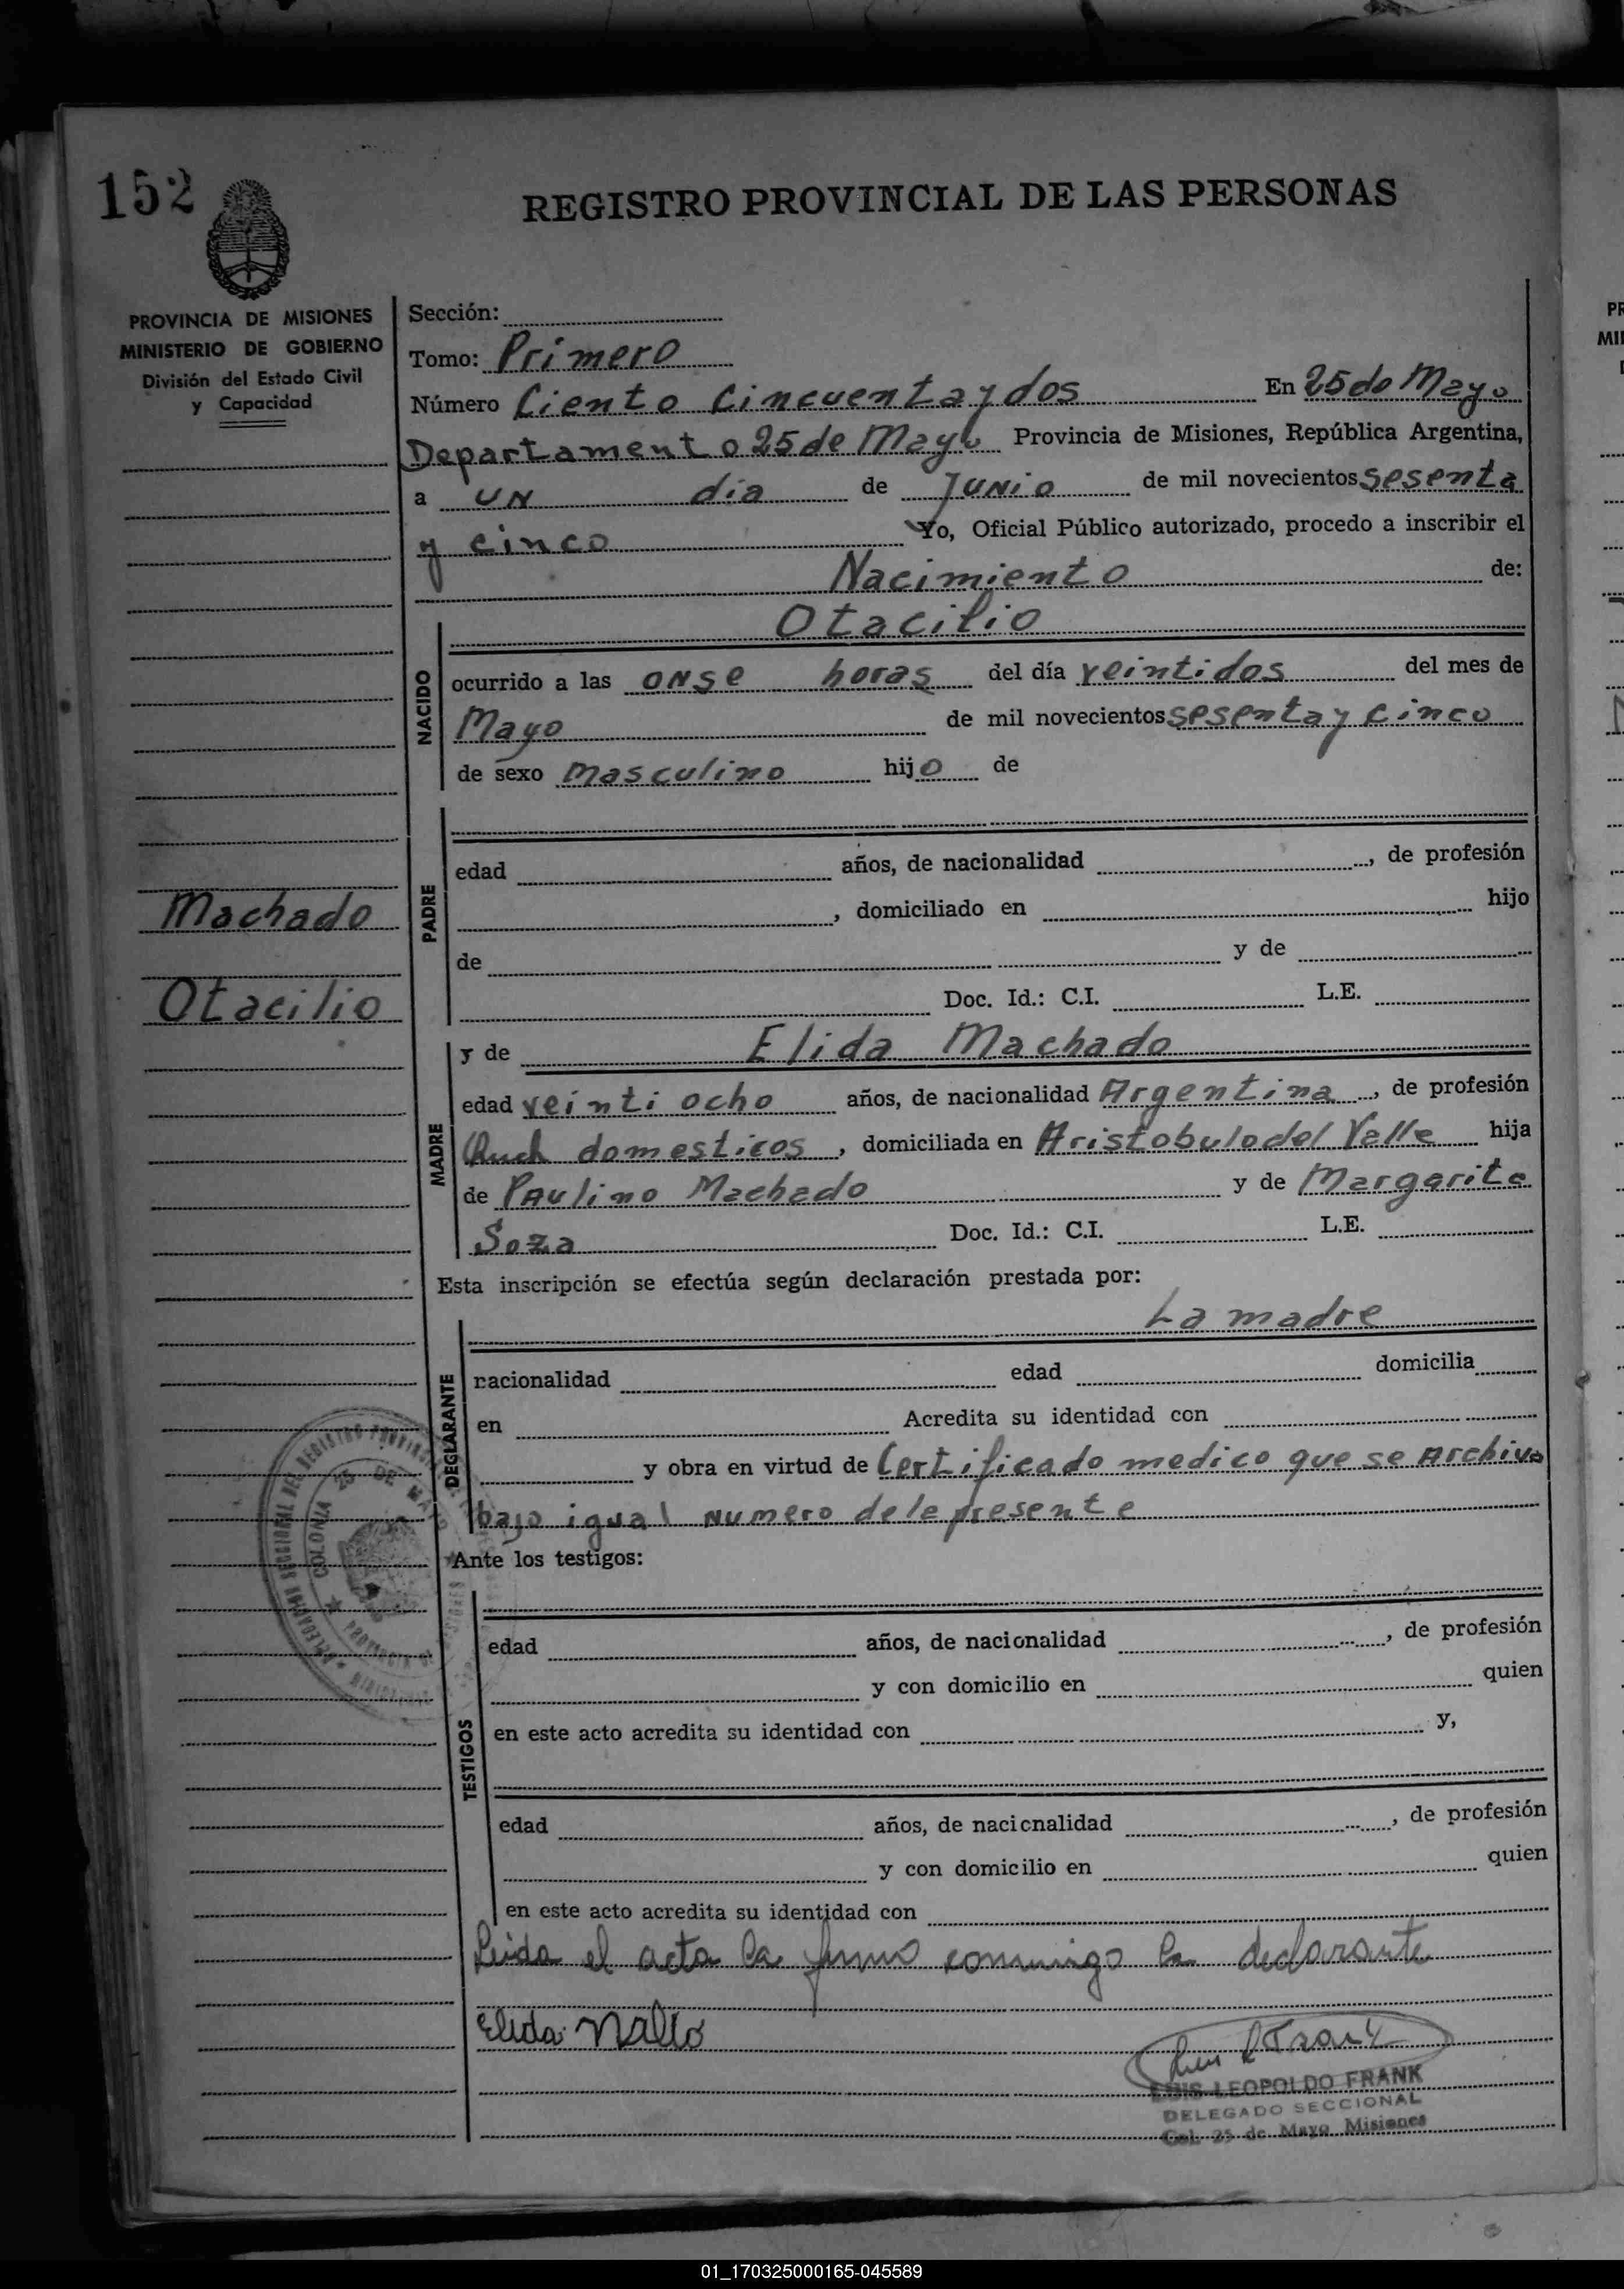 152
REGISTRO PROVINCIAL DE LAS PERSONAS
PROVINCIA DE MISIONES
MINISTERIO DE GOBIERNO
División del Estado Civil
y Capacidad
Sección:
Tomo: Primero
Número Ciento Cincuenta y dos En 25 de Mayo
Departamento 25 de Mayo Provincia de Misiones, República Argentina,
a UN día de JUNio de mil novecientos sesenta
y cinco Yo, Oficial Público autorizado, procedo a inscribir el
Nacimiento de:
NACIDO
Otacilio
ocurrido a las onse horas del día veintidos del mes de
Mayo de mil novecientos sesenta y cinco
de sexo masculino hijo de
PADRE
edad años, de nacionalidad , de profesión
, domiciliado en hijo
de y de
Doc. Id.: C.I. L.E.
Machado
Otacilio
MADRE
y de Elida Machado
edad veinti ocho años, de nacionalidad Argentina , de profesión
domesticos , domiciliada en Aristobulo del Valle hija
de Paulino Machado y de Margarita
Soza Doc. Id.: C.I. L.E.
Esta inscripción se efectúa según declaración prestada por:
DECLARANTE
La madre
nacionalidad edad domicilia
en Acredita su identidad con
y obra en virtud de Certificado medico que se Archiva
bajo igual numero de la presente
Ante los testigos:
TESTIGOS
edad años, de nacionalidad , de profesión
y con domicilio en quien
en este acto acredita su identidad con y,
edad años, de nacionalidad , de profesión
y con domicilio en quien
en este acto acredita su identidad con
Leida el acta la firma conmigo la declarante
Elida
LUIS LEOPOLDO FRANK
DELEGADO SECCIONAL
Col. 25 de Mayo Misiones
COLONIA 25 DE MAYO
01_170325000165-045589